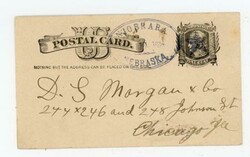 NIOBRARA
NEBRASKA
US
POSTAL CARD.
NOTHING BUT THE ADDRESS CAN BE PLACED ON THIS SIDE.
D. S. Morgan & Co
244 & 246 and 248 Johnson St
Chicago